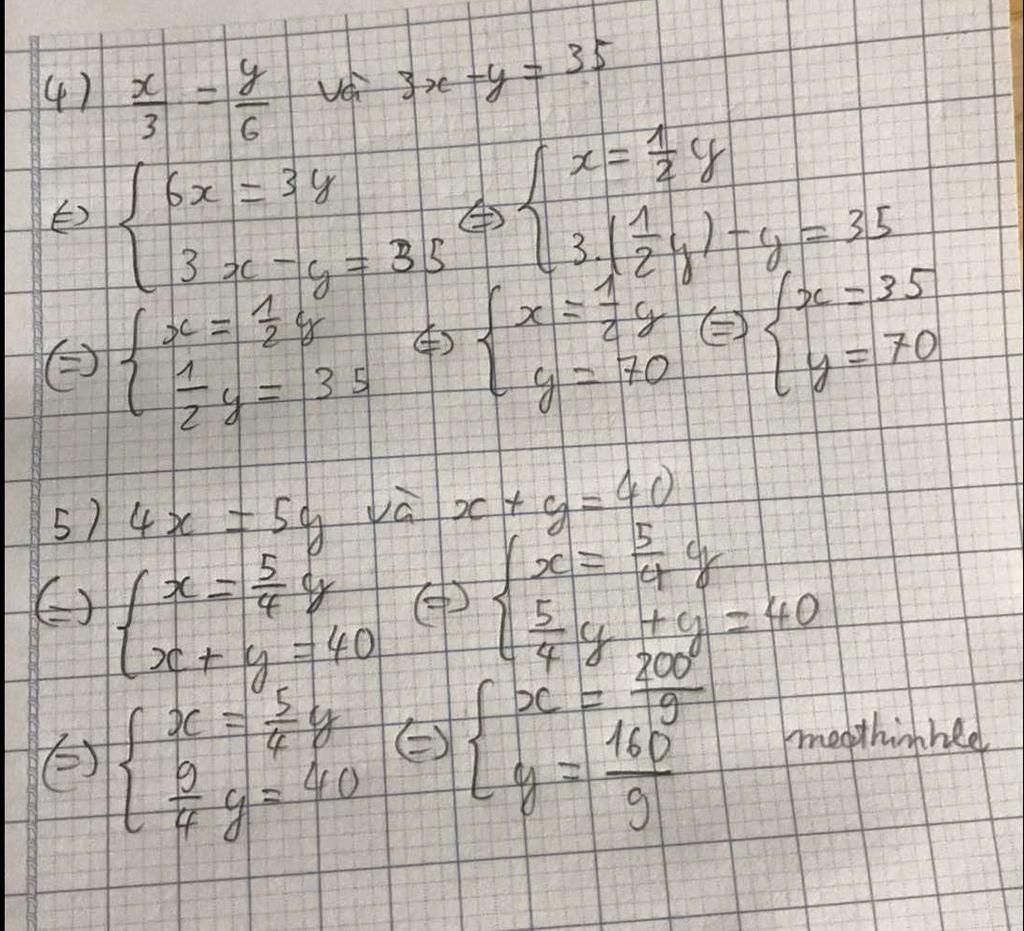 4) x/3 = y/6 và 3x - y = 35
⇔ { 6x = 3y ; 3x - y = 35 ⇔ { x = 1/2 y ; 3.(1/2 y) - y = 35
⇔ { x = 1/2 y ; 1/2 y = 35 ⇔ { x = 1/2 y ; y = 70 ⇔ { x = 35 ; y = 70
5) 4x = 5y và x + y = 40
⇔ { x = 5/4 y ; x + y = 40 ⇔ { x = 5/4 y ; 5/4 y + y = 40
⇔ { x = 5/4 y ; 9/4 y = 40 ⇔ { x = 200/9 ; y = 160/9